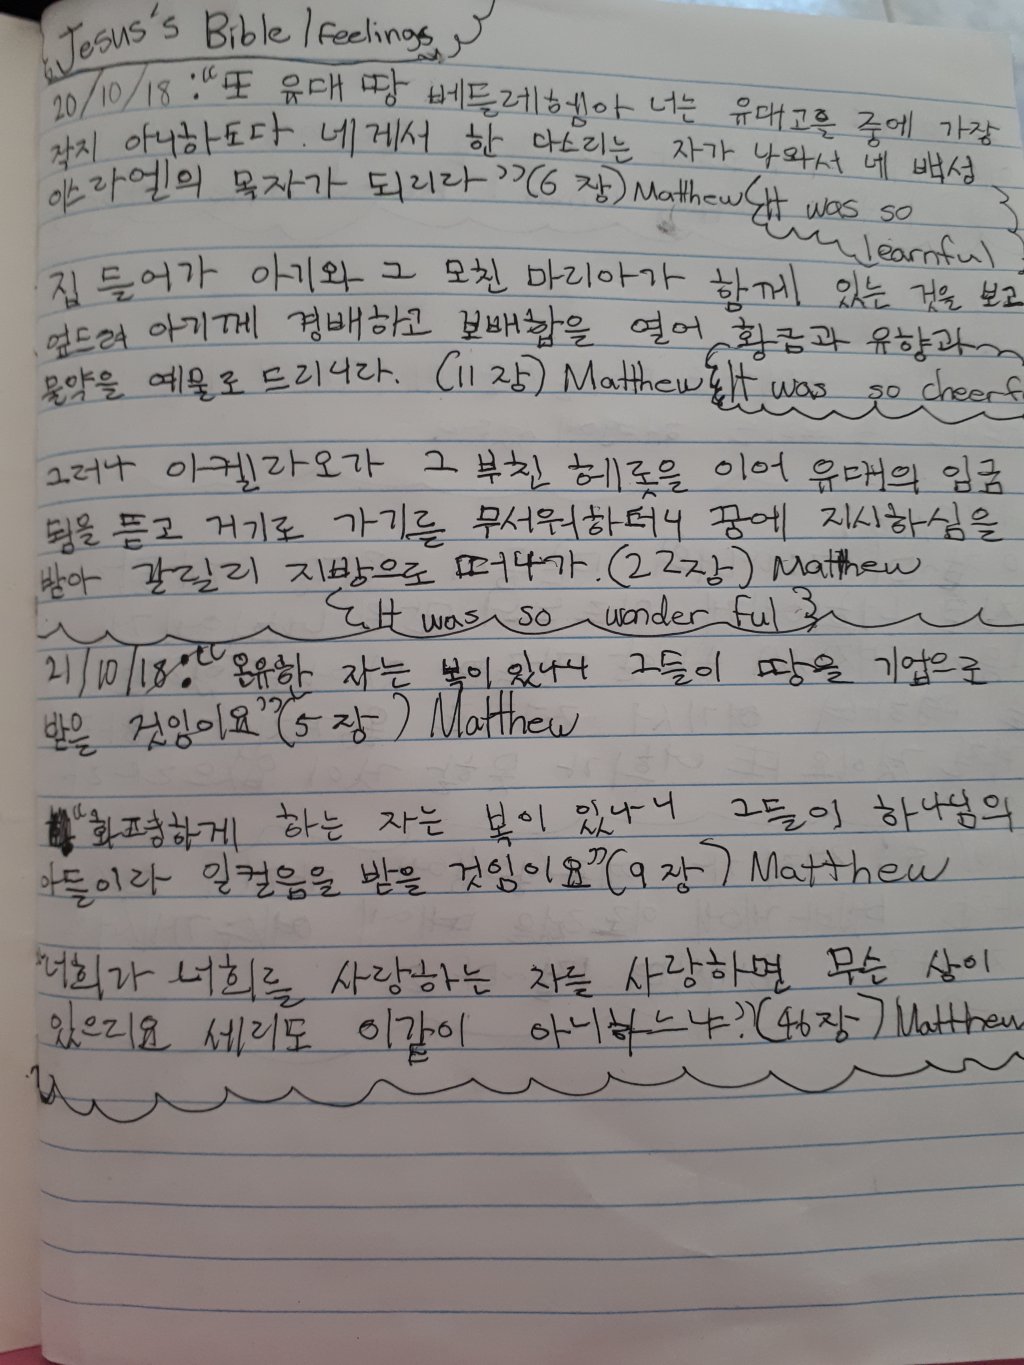 Jesus's Bible/feelings
20/10/18 :“또 유대 땅 베들레헴아 너는 유대고을 중에 가장
작지 아니하도다. 네게서 한 다스리는 자가 나와서 네 백성
이스라엘의 목자가 되리라”(6 장) Matthew {It was so
learnful }
집 들어가 아기와 그 모친 마리아가 함께 있는 것을 보고
엎드려 아기께 경배하고 보배합을 열어 황금과 유향과
몰약을 예물로 드리니라. (11 장) Matthew {It was so cheerf
그러나 아켈라오가 그 부친 헤롯을 이어 유대의 임금
됨을 듣고 거기로 가기를 무서워하더니 꿈에 지시하심을
받아 갈릴리 지방으로 떠나가. (22장) Matthew
{It was so wonderful }
21/10/18:“온유한 자는 복이 있나니 그들이 땅을 기업으로
받을 것임이요”(5 장 ) Matthew
“화평하게 하는 자는 복이 있나니 그들이 하나님의
아들이라 일컬음을 받을 것임이요”(9 장 ) Matthew
“너희가 너희를 사랑하는 자를 사랑하면 무슨 상이
있으리요 세리도 이같이 아니하느냐?(46장 ) Matthew